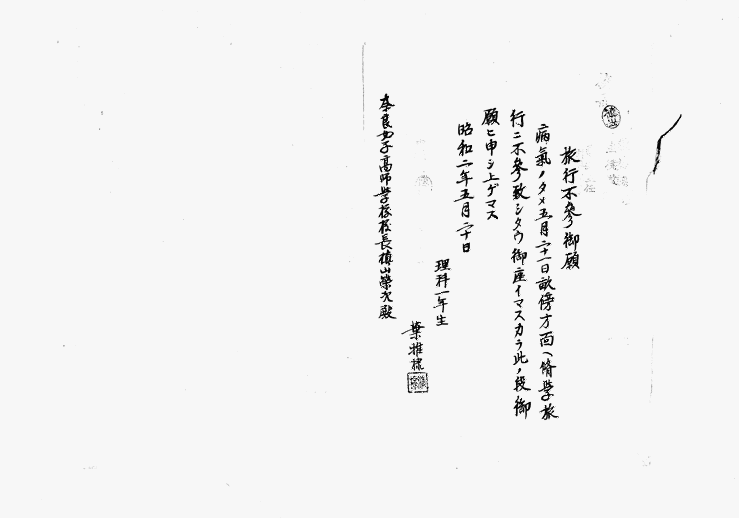 旅行不參御願
病氣ノタメ五月二十一日畝傍方面ヘ脩學旅
行ニ不參致シタウ御座イマスカラ此ノ段御
願ヒ申シ上ゲマス
昭和二年五月二十日
理科一年生
葉雅棣
奈良女子高師學校校長槙山榮次殿